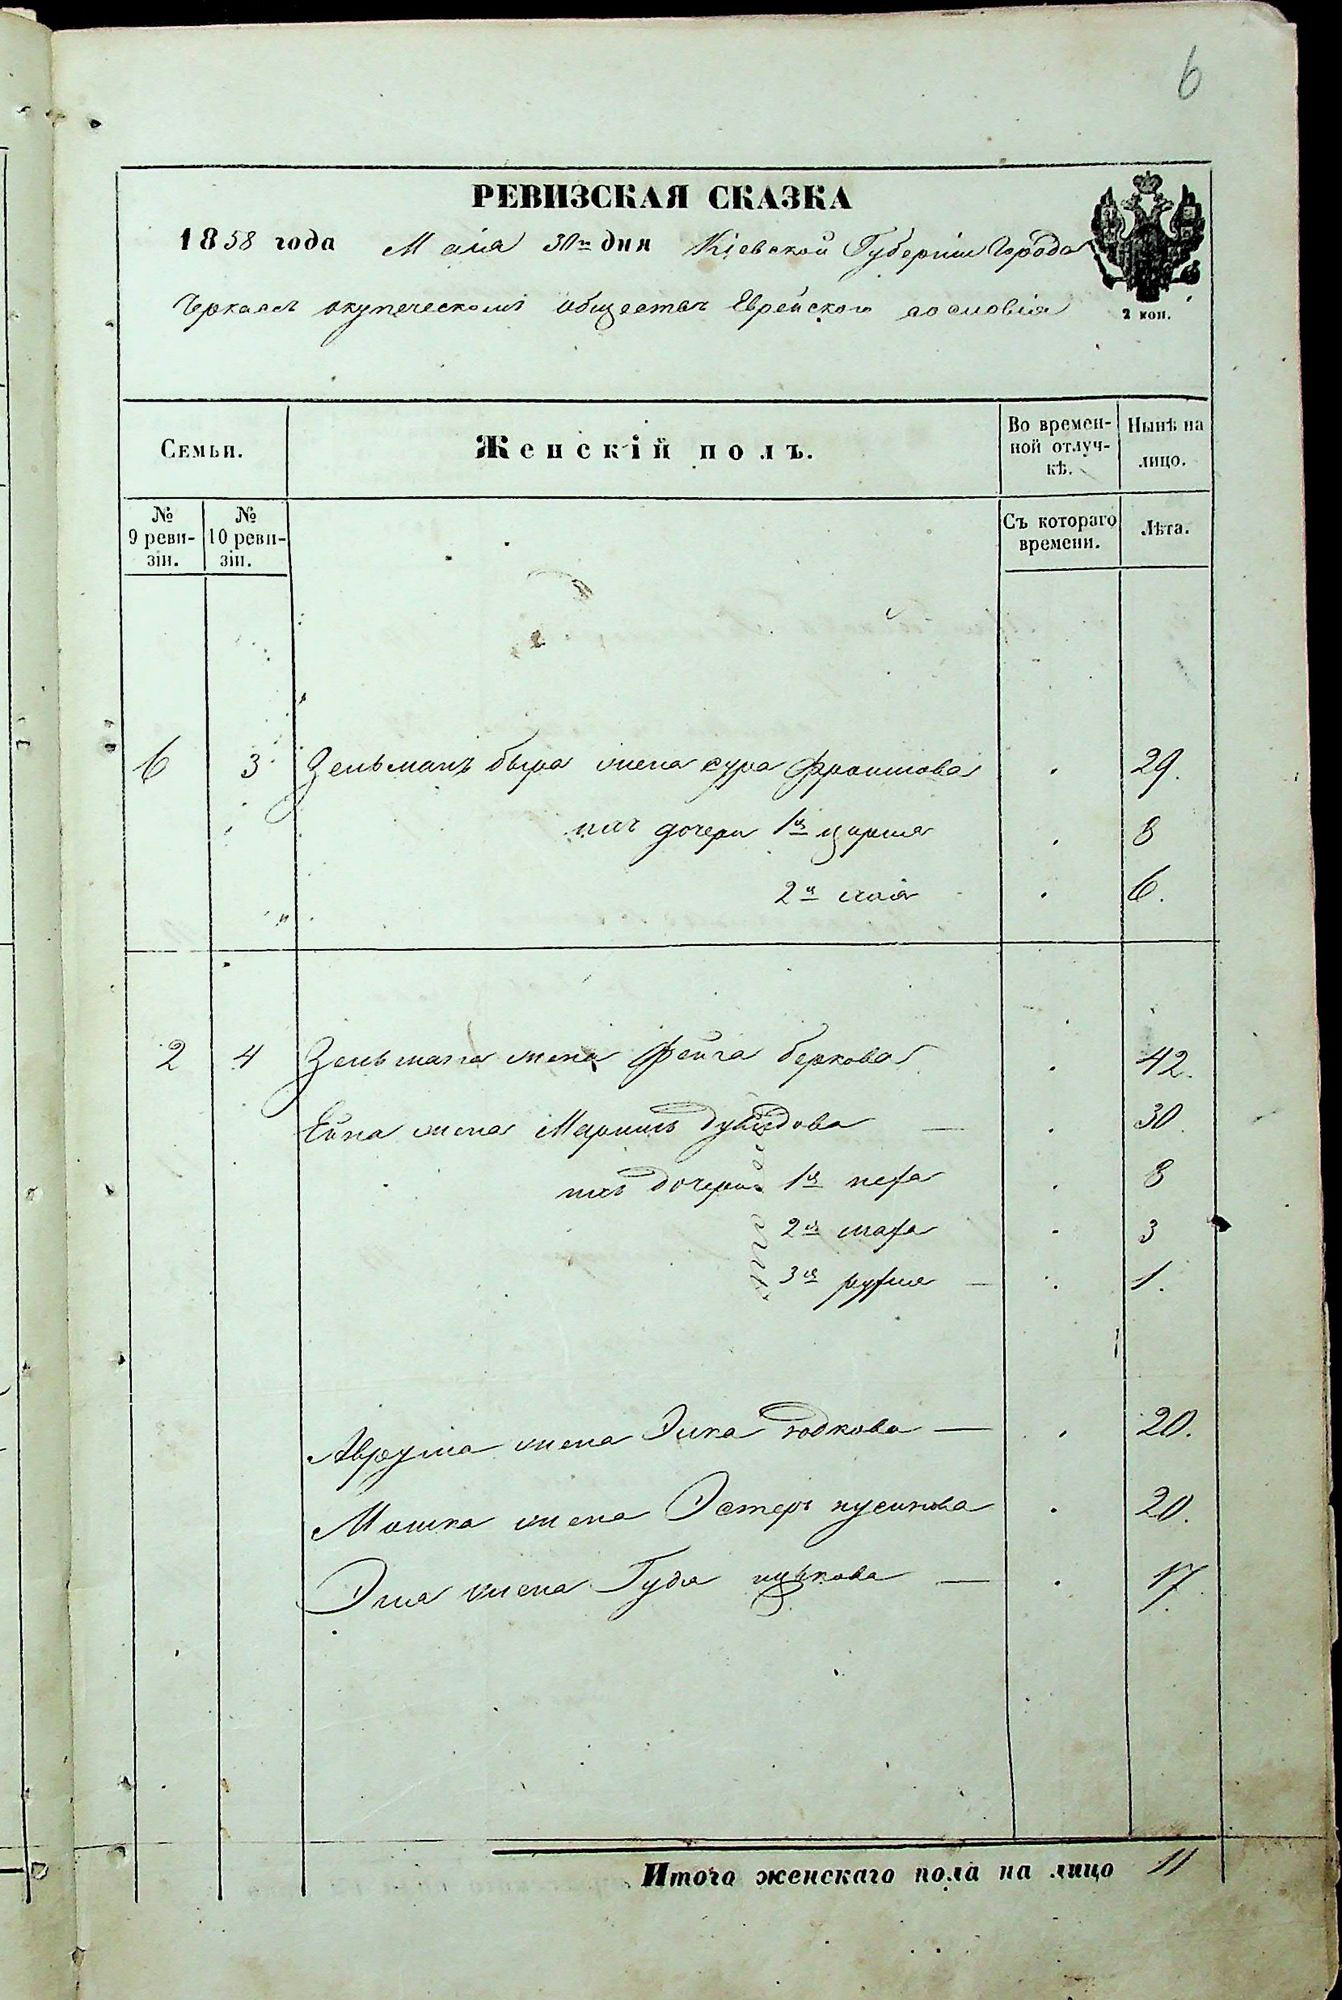 6
РЕВИЗСКАЯ СКАЗКА
1858 года Маія 30го дня Кіевской Губерніи Города
Черкасъ окупеческомъ обществѣ Еврейского сословія
2 коп.
Семьи.
Женскій полъ.
Во времен-
ной отлуч-
кѣ.
Нынѣ на
лицо.
№
9 реви-
зіи.
№
10 реви-
зіи.
Съ котораго
времени.
Лѣта.
6 3 Зельманъ жена сура 29.
ихъ дочери 1я 8
2я 6.
2 4 Зельмана жена фейга беркова 42.
жена Дувидова 30.
ихъ дочери 1я 8
2я 3
3я 1.
Аврума жена Элка юдкова 20.
Мошка жена Эстеръ нусинова 20.
жена Гудя 17.
Итого женскаго пола на лицо 11